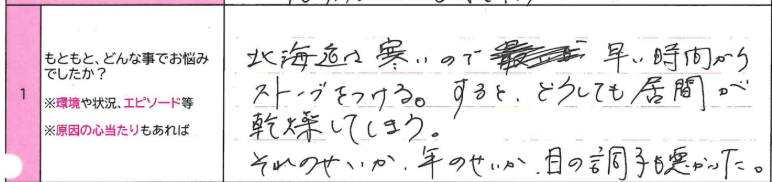 1
もともと、どんな事でお悩み
でしたか？
※環境や状況、エピソード等
※原因の心当たりもあれば
北海道は寒いので 早い時間から
ストーブをつける。すると、どうしても居間が
乾燥してしまう。
それのせいか、年のせいか、目の調子も悪かった。